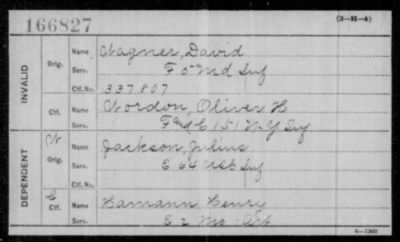 166827
(3-H-4)
INVALID
Orig.
Name Wagner, David
Serv. F 5" Md Inf
Ctf. No. 337807
Ctf.
Name Nordon, Oliver H
Serv. F and C 151 N.Y Inf
DEPENDENT
W
Orig.
Name Jackson, Julius
Serv. E 64 USC Inf
Ctf. No.
C
Ctf.
Name Hamann Henry
Serv. E 2 Mo Art